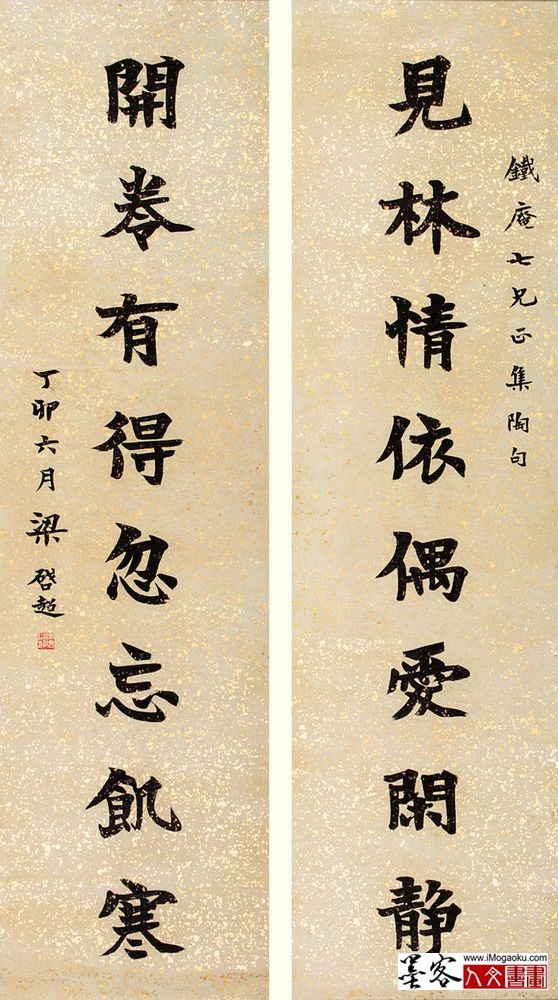 鐵庵七兄正集陶句
見林情依偶愛閑静
開卷有得忽忘飢寒
丁卯六月梁啓超
墨客
www.iMogaoku.com
人文書畫